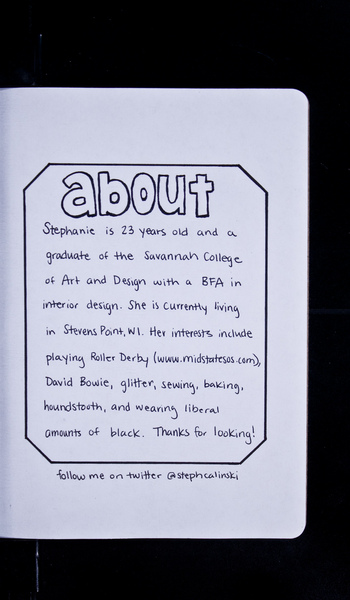 about
Stephanie is 23 years old and a
graduate of the Savannah College
of Art and Design with a BFA in
interior design. She is currently living
in Stevens Point, WI. Her interests include
playing Roller Derby (www.midstatesos.com),
David Bowie, glitter, sewing, baking,
houndstooth, and wearing liberal
amounts of black. Thanks for looking!
follow me on twitter @stephcalinski